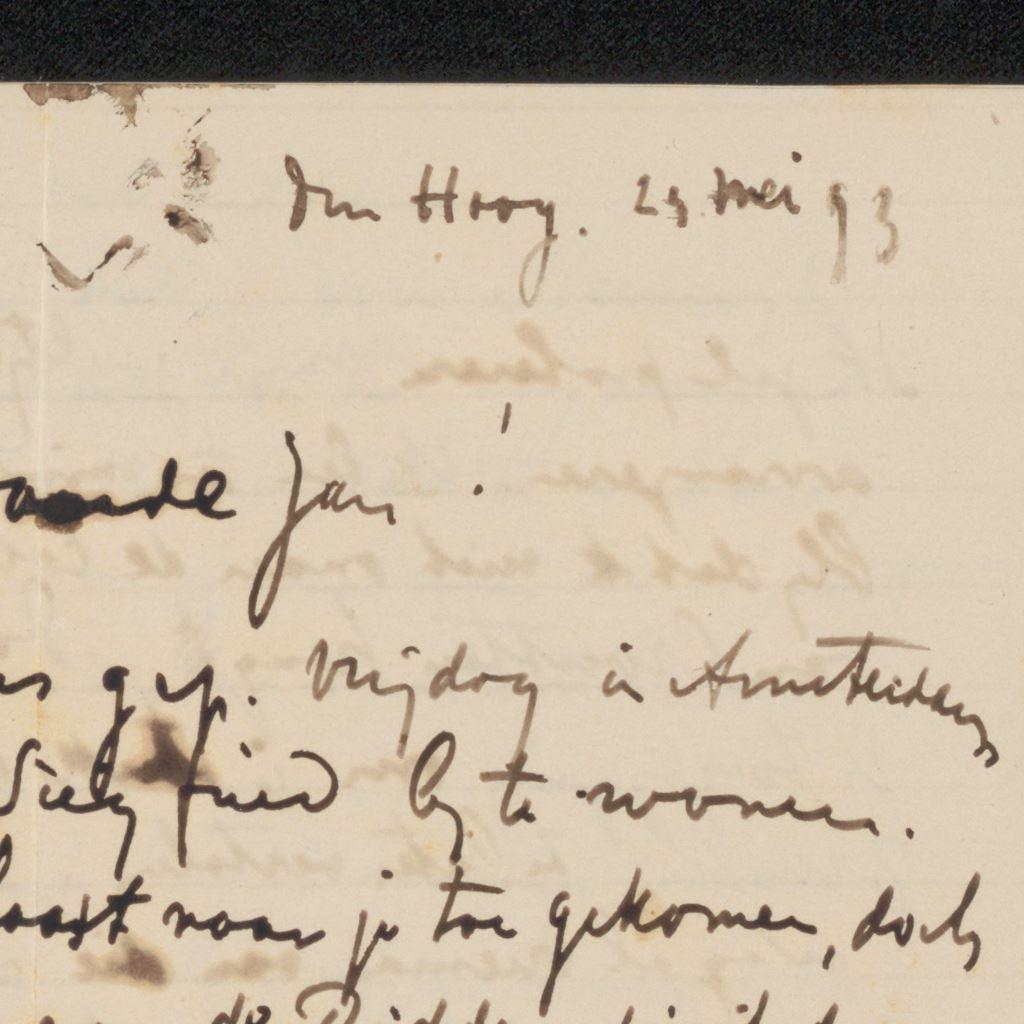 den Haag. 23 Mei 93
aarde Jan!
as gep. vrijdag in Amsterdam
Siegfried by te wonen.
haast naar je toe gekomen, doch
de Ridder